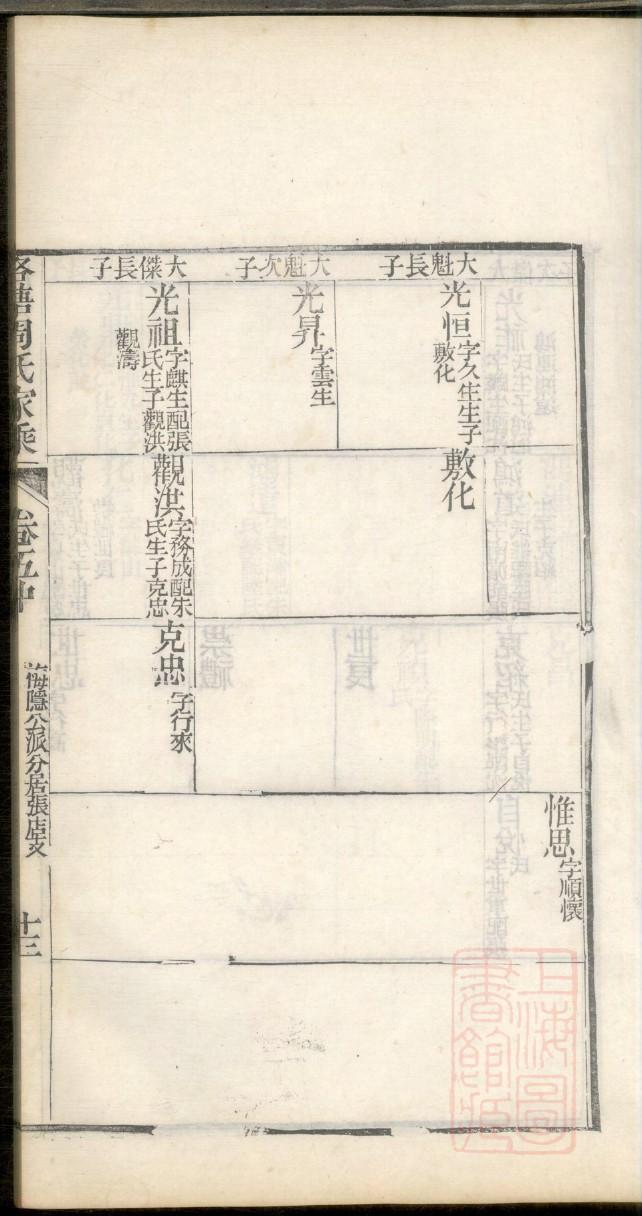 大魁長子
光恒字久生生子
敷化
敷化
大魁次子
光昇字雲生
大傑長子
光祖字麒生配張
氏生子觀洪
觀濤
觀洪字務成配朱
氏生子克忠
克忠字行來
惟思字順懷
周氏家乘
卷五中
梅隱公派分居張店支
十三
上海圖書館藏